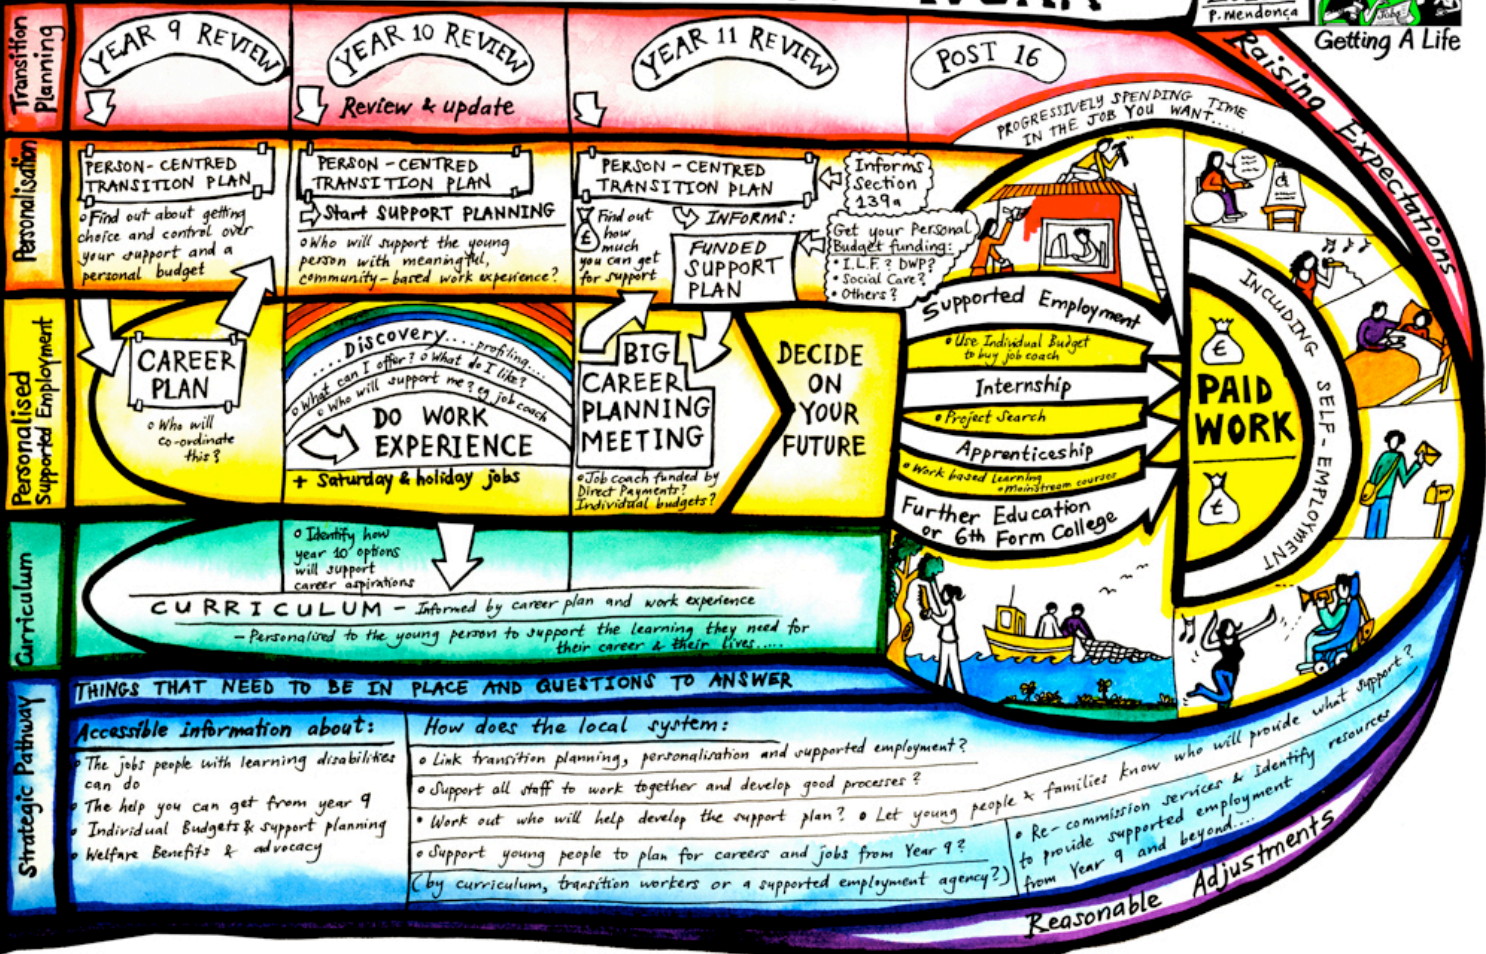 P. Mendonça
Jobs
Getting A Life
Transition
Planning
YEAR 9 REVIEW
YEAR 10 REVIEW
Review & update
YEAR 11 REVIEW
POST 16
PROGRESSIVELY SPENDING TIME
IN THE JOB YOU WANT.....
Raising Expectations
Personalisation
PERSON-CENTRED
TRANSITION PLAN
o Find out about getting
choice and control over
your support and a
personal budget
PERSON-CENTRED
TRANSITION PLAN
Start SUPPORT PLANNING
o Who will support the young
person with meaningful,
community-based work experience?
PERSON-CENTRED
TRANSITION PLAN
£
Find out
how
much
you can get
for support
INFORMS:
FUNDED
SUPPORT
PLAN
Informs
Section
139a
Get your Personal
Budget funding:
• I.L.F.? DWP?
• Social Care?
• Others?
Personalised
Supported Employment
CAREER
PLAN
o Who will
co-ordinate
this?
Discovery....profiling....
....What can I offer? o What do I like?
o Who will support me? eg job coach
DO WORK
EXPERIENCE
+ Saturday & holiday jobs
BIG
CAREER
PLANNING
MEETING
o Job coach funded by
Direct Payments?
Individual budgets?
DECIDE
ON
YOUR
FUTURE
Supported Employment
• Use Individual Budget
to buy job coach
Internship
• Project Search
Apprenticeship
• Work based Learning
• Mainstream courses
Further Education
or 6th Form College
£
PAID
WORK
£
INCLUDING SELF-EMPLOYMENT
Curriculum
o Identify how
year 10 options
will support
career aspirations
CURRICULUM - Informed by career plan and work experience
- Personalised to the young person to support the learning they need for
their career & their lives.....
Strategic Pathway
THINGS THAT NEED TO BE IN PLACE AND QUESTIONS TO ANSWER
Accessible information about:
o The jobs people with learning disabilities
can do
o The help you can get from year 9
o Individual Budgets & support planning
o Welfare Benefits & advocacy
How does the local system:
o Link transition planning, personalisation and supported employment?
o Support all staff to work together and develop good processes?
• Work out who will help develop the support plan? • Let young people & families know who will provide what support?
o Support young people to plan for careers and jobs from Year 9?
(by curriculum, transition workers or a supported employment agency?)
• Re-commission services & identify resources
to provide supported employment
from Year 9 and beyond....
Reasonable Adjustments